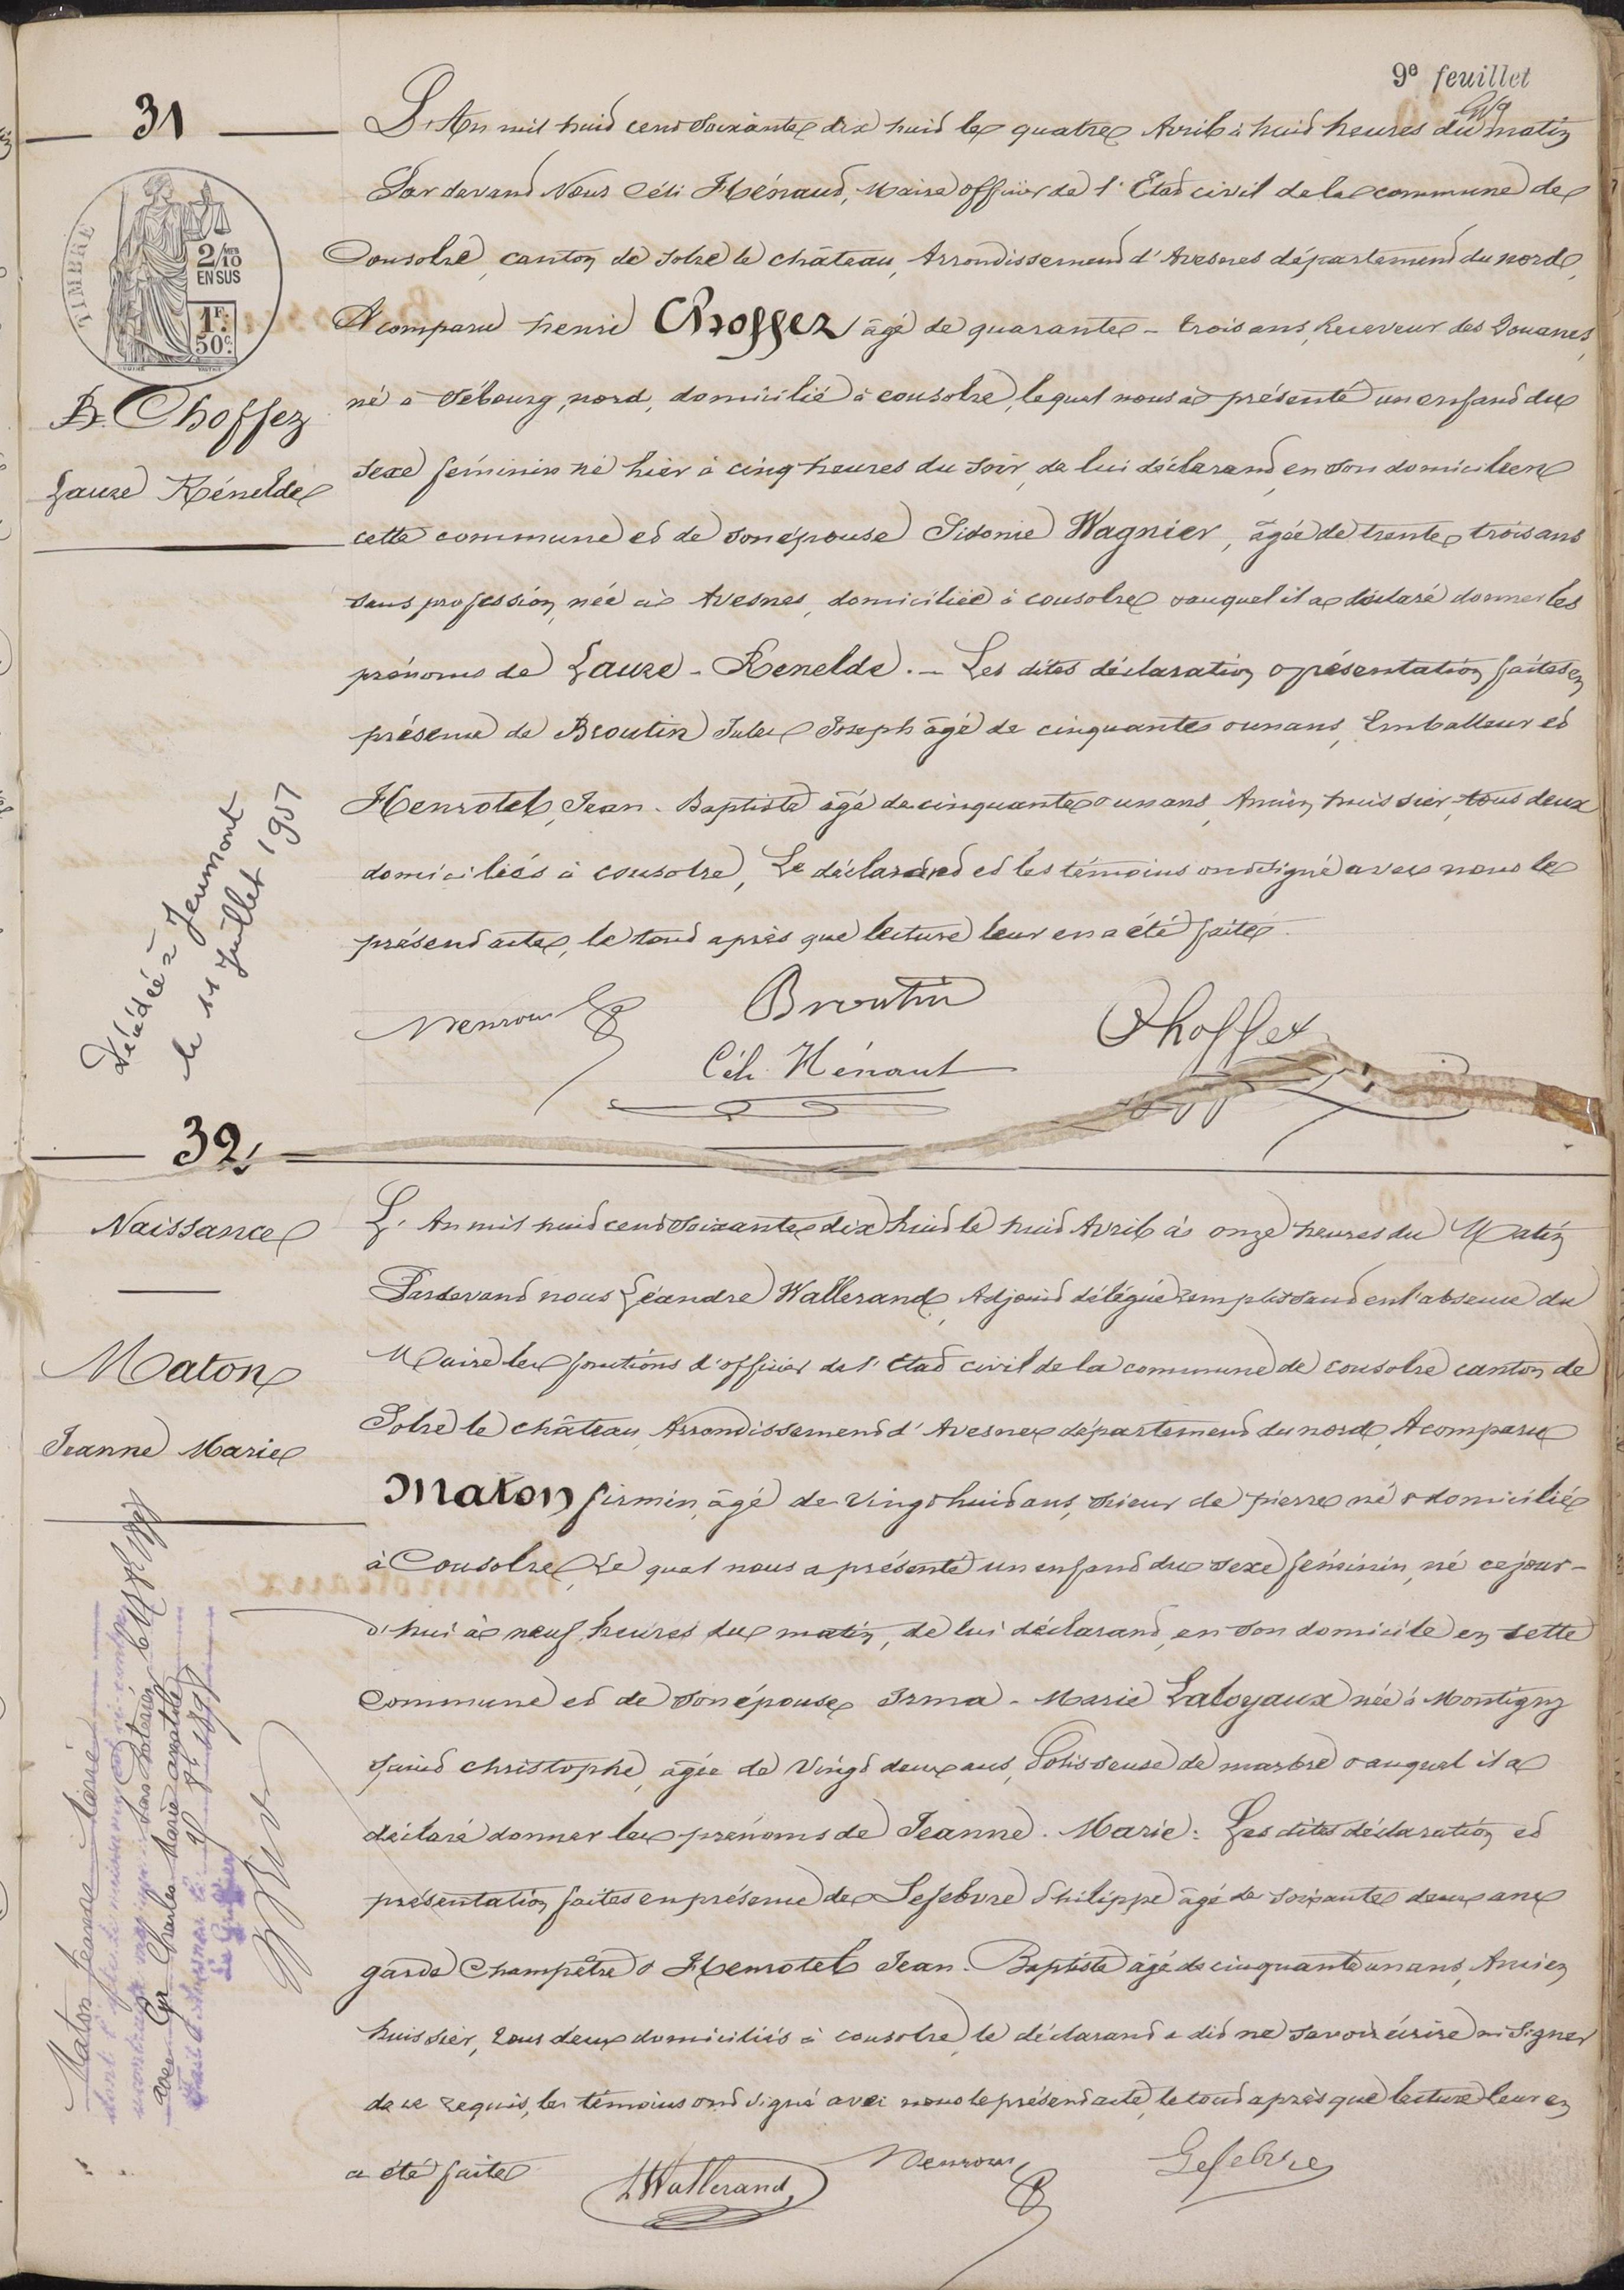 9e feuillet
31
L'An mil huit cent soixante dix huit le quatre Avril à huit heures du matin
Par devant Nous Céli Hénaut, Maire officier de l'Etat civil de la commune de
Cousolre, canton de Solre le château, Arrondissement d'Avesnes département du nord,
A comparu henri Choffez âgé de quarante - trois ans, Receveur des Douanes,
né à Sébourg, nord, domicilié à cousolre, lequel nous a présenté un enfant du
sexe féminin né hier à cinq heures du soir, de lui déclarant, en son domicile en
cette commune et de son épouse Sidonie Wagnier, âgée de trente trois ans
sans profession, née à Avesnes, domiciliée à cousolre & auquel il a déclaré donner les
prénoms de Laure - Renelde. - Les dites déclaration & présentation faites en
présence de Broutin Jules Joseph âgé de cinquante & un ans, Emballeur et
Henrotel, Jean - Baptiste âgé de cinquante & un ans, Ancien huissier, tous deux
domiciliés à cousolre, Le déclarant et les témoins ont signé avec nous le
présent acte, le tout après que lecture leur en a été faite.
Broutin
Céli Hénaut
Choffez
TIMBRE
2/10
EN SUS
1F.
50c.
Choffez
Laure Rénelde
Décédée à Jeumont
le 11 Juillet 1957
32
Naissance
Maton
Jeanne Marie
L'An mil huit cent soixante dix huit le huit Avril à onze heures du Matin
Pardevant nous Léandre Wallerand, Adjoint délégué remplissant en l'absence du
Maire les fonctions d'officier de l'Etat civil de la commune de cousolre canton de
Solre le château, Arrondissement d'Avesnes département du nord, A comparu
Maton firmin, âgé de vingt huit ans, scieur de pierre né & domicilié
à Cousolre, Le quel nous a présenté un enfant du sexe féminin, né cejour-
d'hui à neuf heures du matin, de lui déclarant, en son domicile en cette
Commune et de son épouse Irma - Marie Laloyaux née à Montigny
Saint christophe, âgée de vingt deux ans, Polisseuse de marbre & auquel il a
déclaré donner les prénoms de Jeanne - Marie: Les dites déclaration et
présentation faites en présence de Lefebvre Philippe âgé de soixante deux ans
garde Champêtre & Henrotel Jean - Baptiste âgé de cinquante un ans, Ancien
huissier, tous deux domiciliés à cousolre, le déclarant a dit ne savoir écrire ni signer
de ce requis, les témoins ont signé avec nous le présent acte, le tout après que lecture leur en
a été faite
LWallerand
Lefebvre
Maton Jeanne Marie
dont l'acte de naissance est ci-contre
avec Cyr Charles Marie
Le Greffier